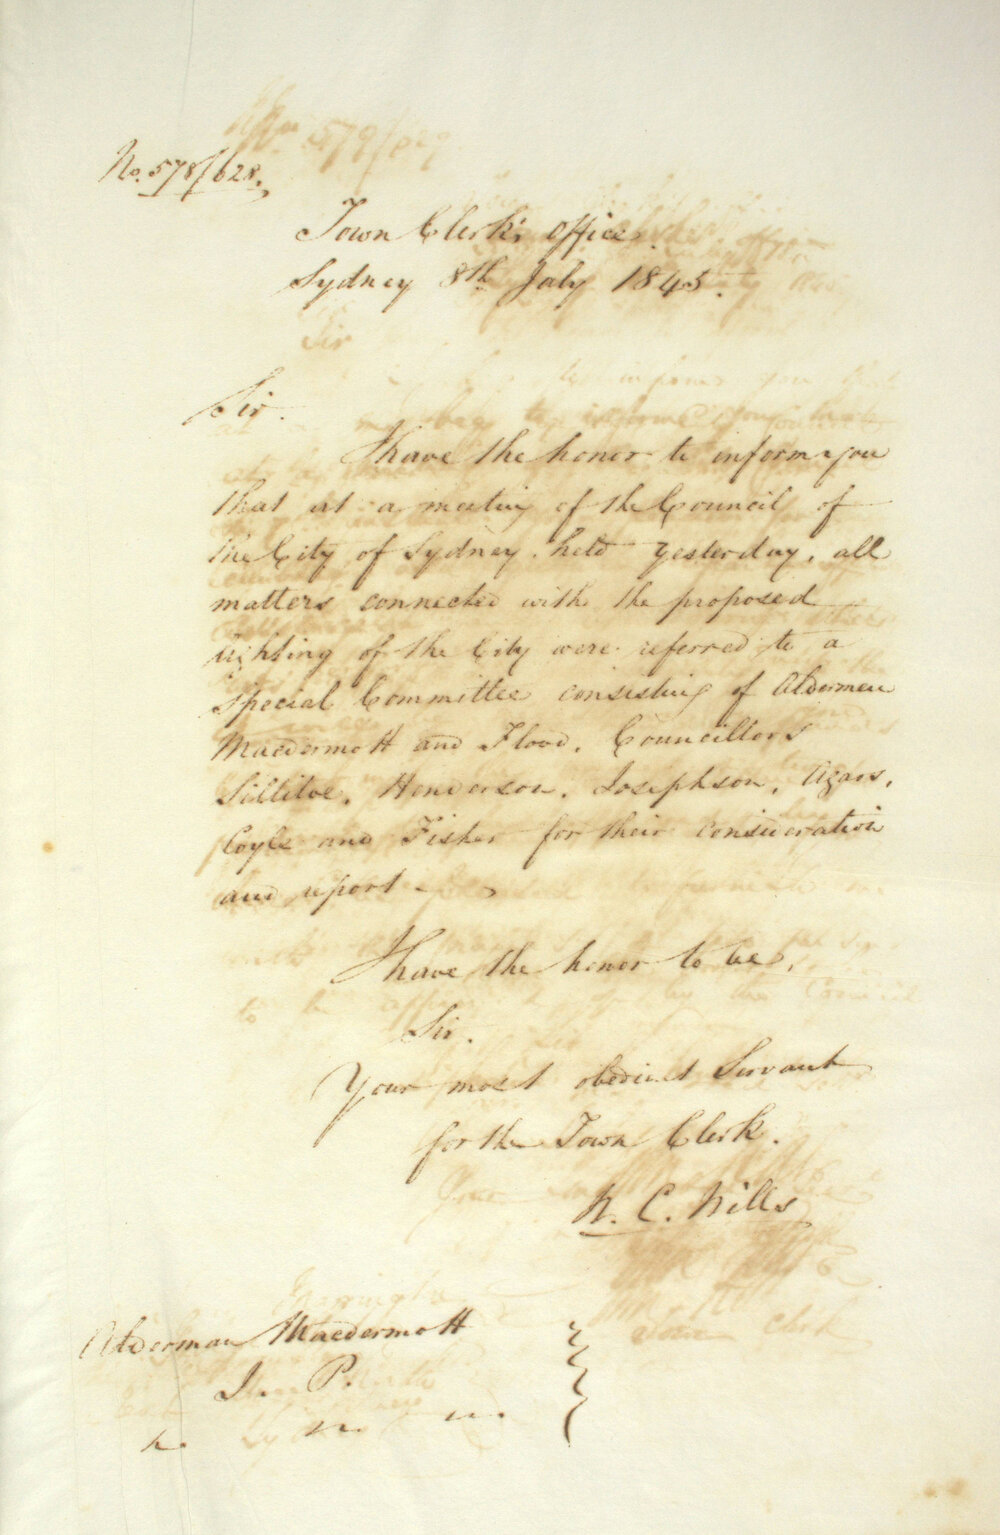 No. 578/628.
Town Clerk's Office.
Sydney 8th July 1845.
Sir.
I have the honor to inform you
that at a meeting of the Council of
the City of Sydney held yesterday, all
matters connected with the proposed
lighting of the City were referred to a
special Committee consisting of Aldermen
Macdermott and Flood. Councillors
Sillitoe, Henderson, Josephson, Agars,
Coyle and Fisher for their consideration
and report.
I have the honor to be,
Sir.
Your most obedient Servant
for the Town Clerk.
Mills
Alderman Macdermott
J. P.